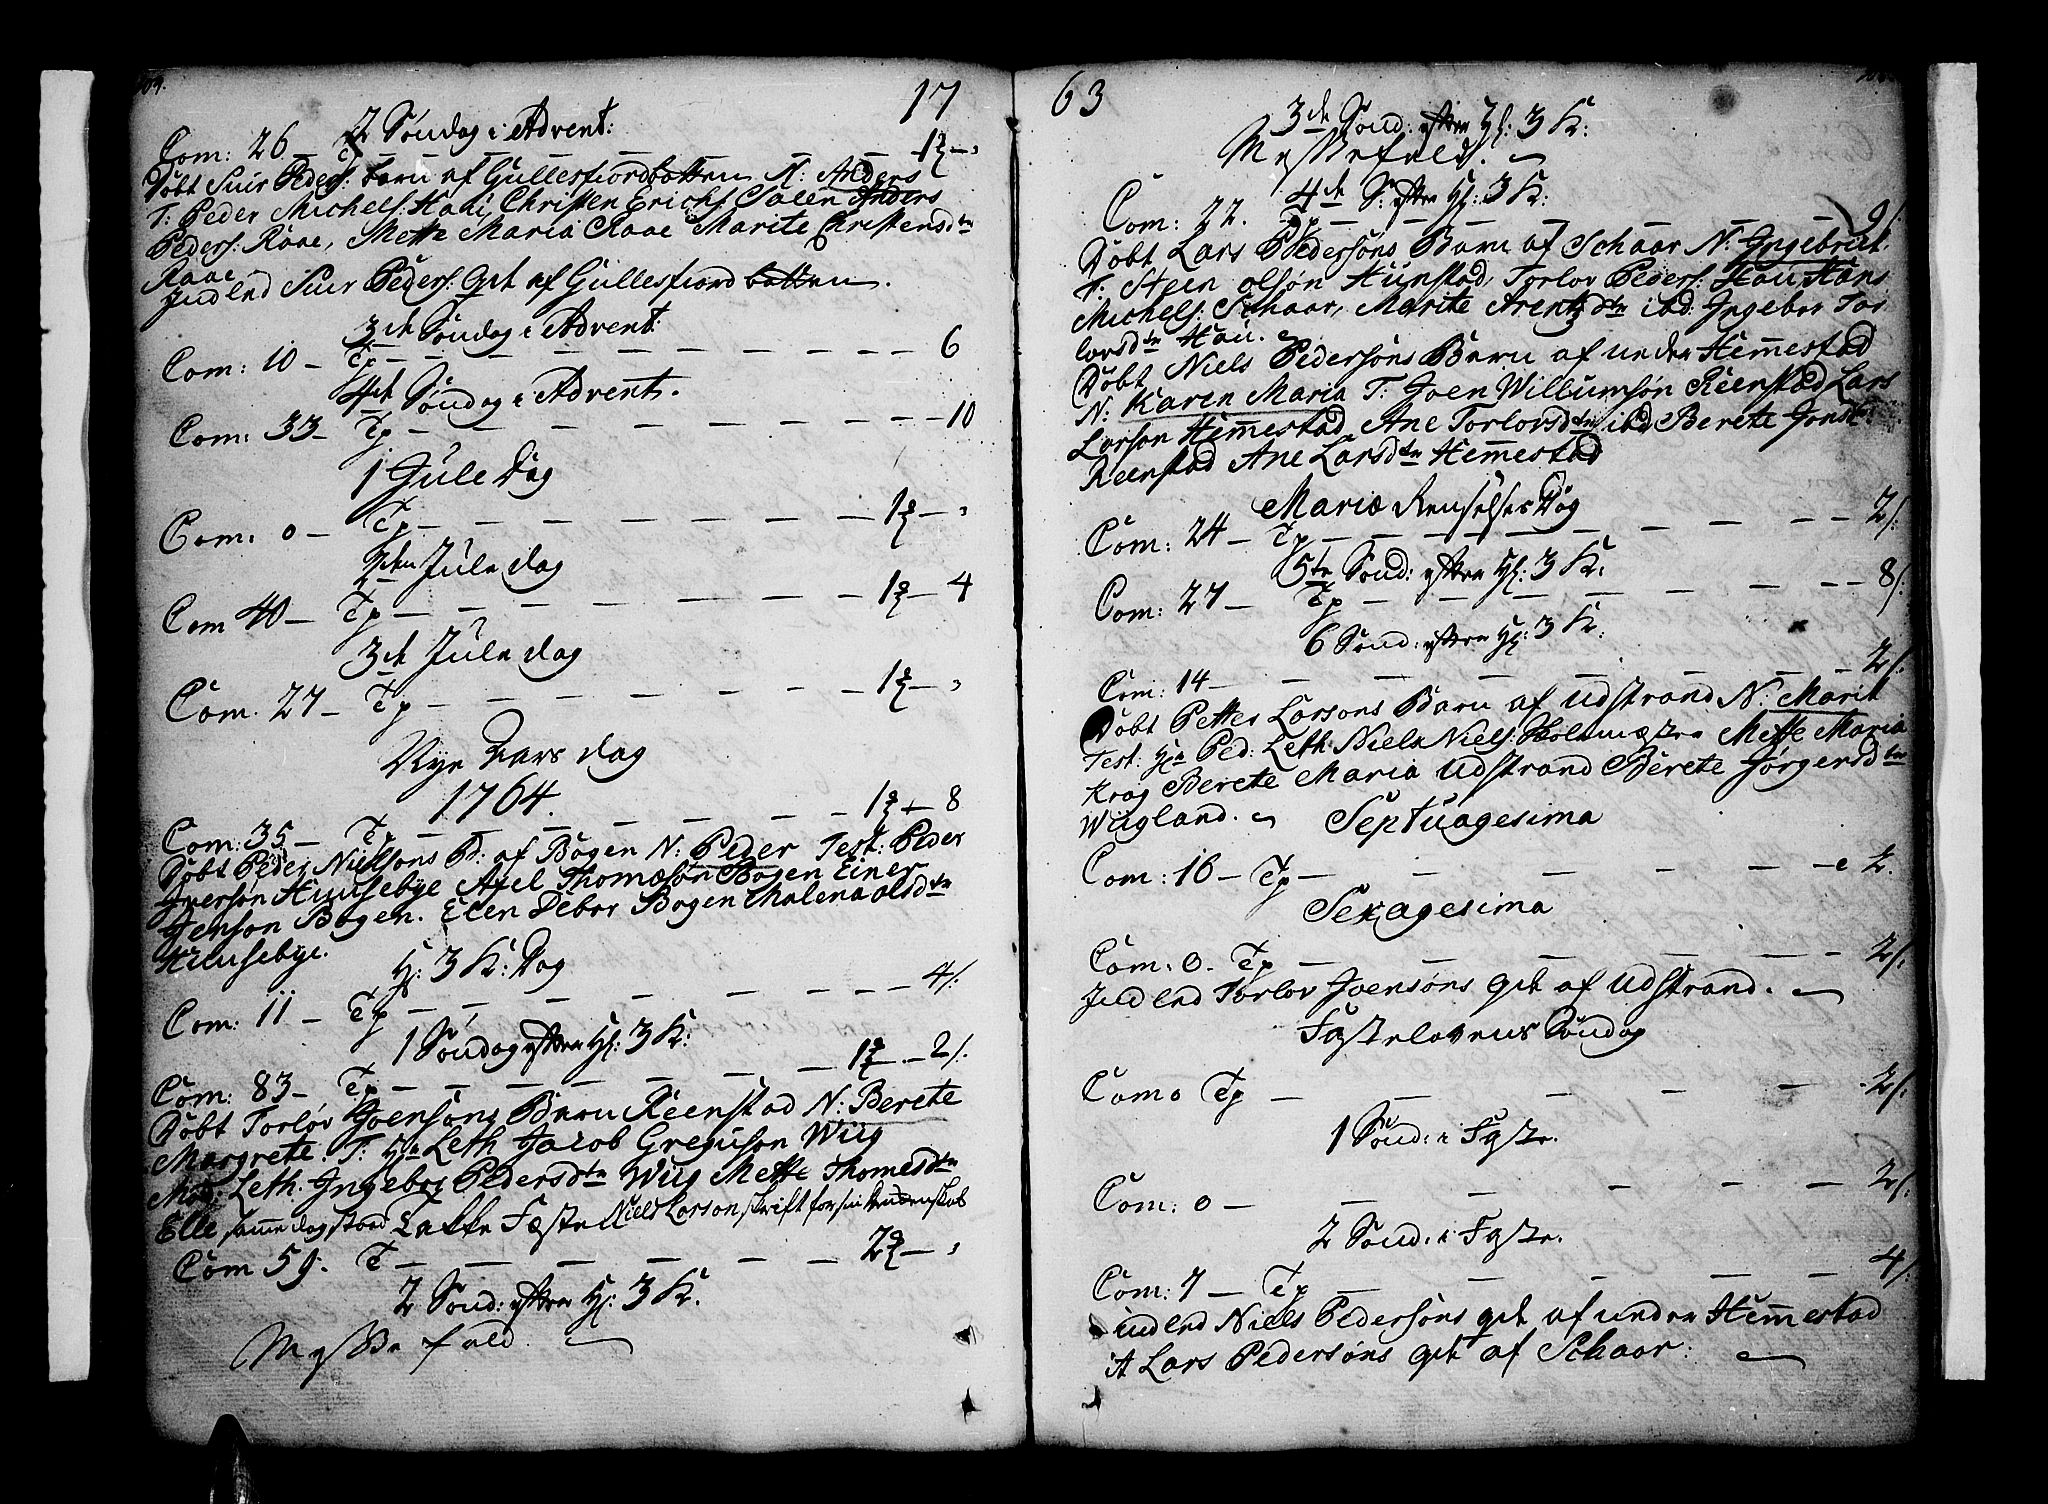 17
2 Søndag i Advent:
Com: 26 — Tp — — — — 1
Døbt Siur Peders: barn af Gullesfiordbotten N: Anders
T: Peder Michels: Hau, Christen Erichs Salen Anders
Peders: Raae, Mette Maria Raae Marite Christensdtr
Raae
Indled Siur Peders: qvt af Gullesfiordbotten.
3de Søndag i Advent:
Com: 10 — Tp — — — — 6
4de Søndag i Advent.
Com: 33 — Tp — — — — 10
1 Jule Dag
Com: 0 — Tp — — — — 1
2den Jule dag
Com 40 — Tp — — — — 1 — 4
3de Jule dag
Com. 27 — Tp — — — — 1
Nye Aars dag
1764.
Com: 35 — Tp — — — — 1 — 8
Døbt Peder Nielsøns B: af Bogen N: Peder Test: Peder
Iversøn Huusebye Axel Thomæsøn Bogen Einer
Jensøn Bogen. Elen Debor Bogen Malena olsdtr
Huusebye.
H: 3 K: Dag
Com: 11 — Tp — — — — 4/:
1 Søndag efter H: 3 K:
Com: 83 — Tp — — — — 1 — 2/:
Døbt Torløv Joensøns Barn Reenstad N: Berete
Margrete. T: Hr Leth Jacob Greguson Wiig
Mad: Leth. Ingebor Pedersdtr Wiig Mette Thomesdtr
Elle, samme dag stoed Lasse Fæste Niels Larson skrift for sin
Com 59. T — — — — 2
2 Sønd: efter H: 3 K.
Messefald.
63
3de Sønd: efter H: 3 K:
Messefald.
4de S: efter H: 3 K:
Com: 22. Tp — — — — 9/:
Døbt Lars Pedersøns Barn af Schaar N: Ingebret
T: Steen olsøn Hunstad, Torlov Peders: Hau Hans
Michels: Schaar, Marite Arentzdtr ibd: Ingebor Tor-
lovsdtr Hau.
Døbt Niels Pedersøns Barn af under Hemmestad
N: Karen Maria T: Joen Willumsøn Reenstad Lars
Larson Hemmestad Ane Torlovsdtr ibd Berete Jonsd:
Reenstad Ane Larsdtr Hemmestad
Mariæ Renselses Dag
Com: 24 — Tp — — — — 2/:
5te Sønd: efter H: 3 K:
Com: 27 — Tp — — — — 8/:
6 Sønd: efter H: 3 K:
Com: 14 — — — — 2/:
Døbt Petter Larsons Barn af udstrand N: Marit
Test: Hr Ped: Leth: Niels Niels: Skolemæster Mette Maria
Krag Berete Maria Udstrand Berete Jørgensdtr
Wiigland.
Septuagesima
Com: 16 — Tp — — — — 2.
Sexagesima
Com: 0. Tp — — — — 2/:
Indled Torlov Joensøns qvt af Udstrand.
Fastelavens Søndag
Com 0 Tp — — — — 2/:
1 Sønd: i Faste.
Com: 0 — — — — 2/:
2 Sønd: i Faste.
Com: 7 — Tp — — — — 4/:
indled Niels Pedersøns qvt af under Hemmestad
it Lars Pedersøns qvt af Schaar: